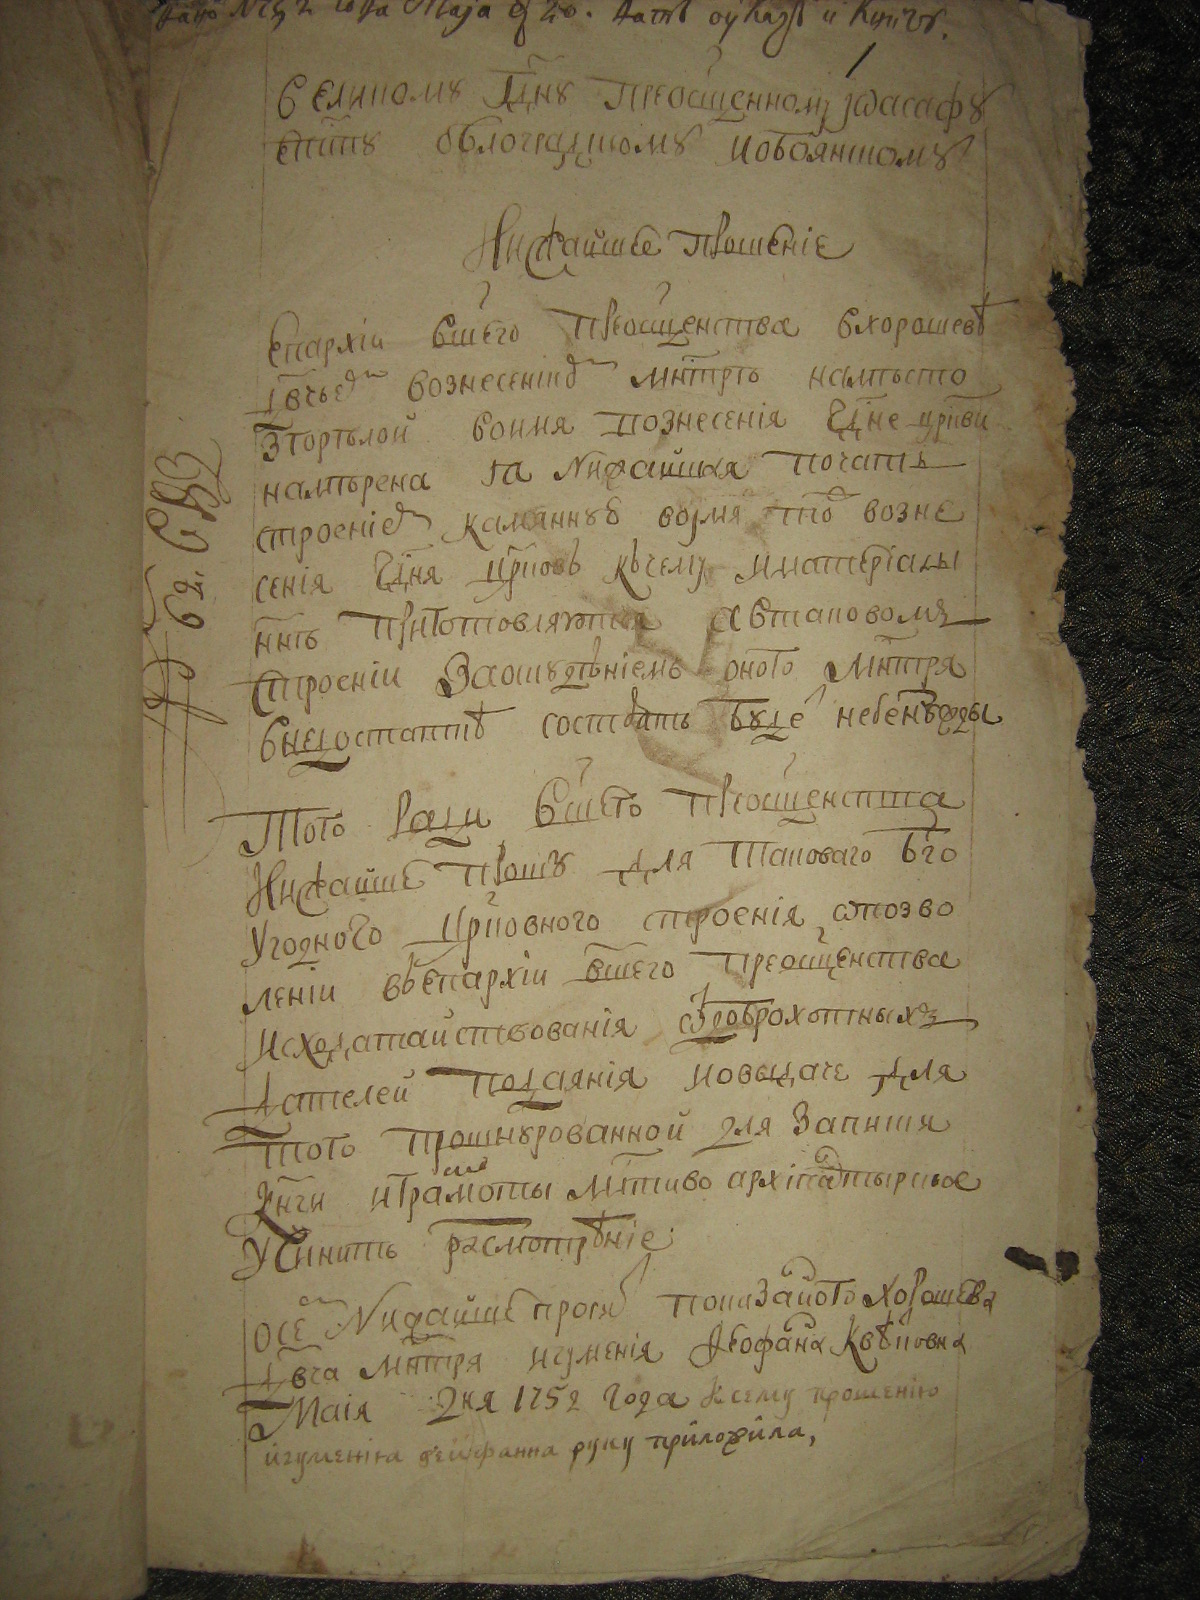 Маја 20. Дать оуказъ и книгу.
1
Великому Гдну Преосщенному Іѡасафу
епспу бѣлоградскому и обоянскому
Нижайшее прошеніе
Епархіи вшего преосщенства в хорошевѣ
двчьем вознесенском мнтрѣ на мѣсто
згорѣлой во имя вознесенія Гдне цркви
намѣрена я нижайшая почать
строеніем камянную во имя того возне
сенія Гдня црковь к чему и матеріалы
ннѣ приготовляются а в таковом
строеніи за оскудѣніем оного мнтря
в недостаткѣ состоять буде не без нужды
Того ради вшего преосщенства
Нижайше прошу для таковаго бго
угодного црковного строенія ѡ позво
леніи в епархіи вшего преосщенства
исходатайствованія ѿ доброхотных
дателей подаянія и о выдаче для
того прошнурованной для записки
книги и грамоты млтиво архіпастырское
Учинить разсмотрѣніе.
О сем нижайше прося показаного Хорошева
двча мнтря игуменія Ѳеофана Квѣковна
Маія дня 1752 года к сему прошенію
игуменіа феофанна руку приложила,